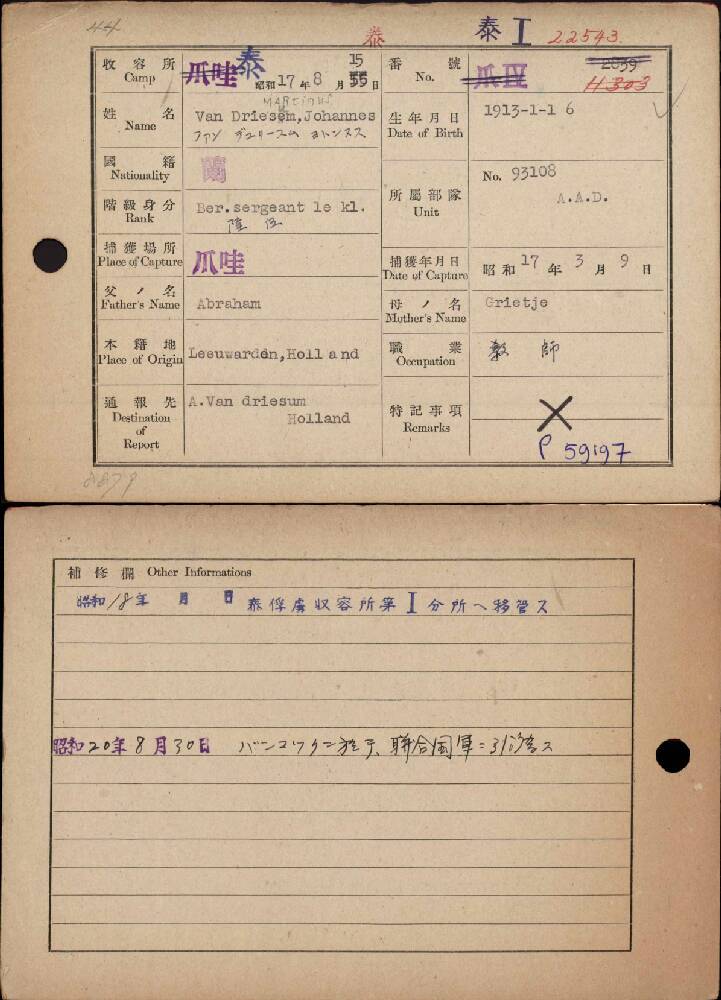 44
泰
泰 I 22543
收容所 Camp 爪哇 泰 昭和17年8月15日
番號 No. 爪Ⅳ 2859 H303
MARtinus
姓名 Name Van Driesem, Johannes
生年月日 Date of Birth 1913-1-1 6
國籍 Nationality 蘭
階級身分 Rank Ber.sergeant 1e kl.
所屬部隊 Unit No. 93108
A.A.D.
捕獲場所 Place of Capture 爪哇
捕獲年月日 Date of Capture 昭和17年3月9日
父ノ名 Father's Name Abraham
母ノ名 Mother's Name Grietje
本籍地 Place of Origin Leeuwarden,Holland
職業 Occupation 教師
通報先 Destination of Report A.Van driesum
Holland
特記事項 Remarks
P 59197
補修欄 Other Informations
昭和18年 月 日 泰俘虜収容所第I分所ヘ移管ス
昭和20年8月30日 バンコックニ於テ、聯合国軍ニ引渡ス